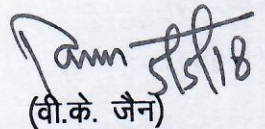 5/5/18
(वी.के. जैन)